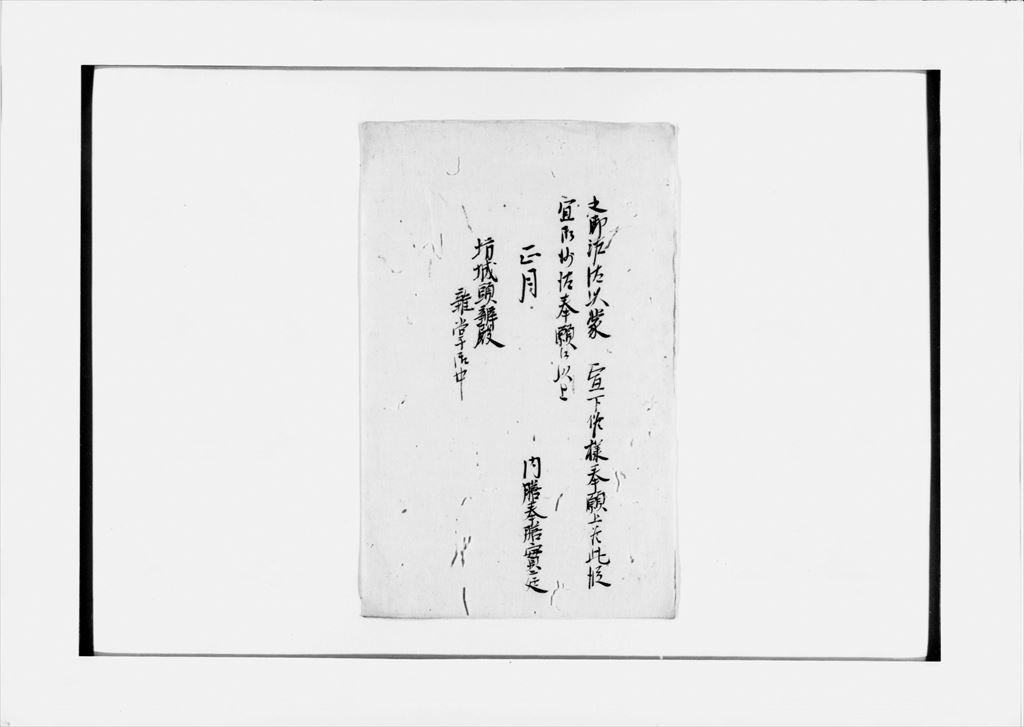 之御沙汰以蒙　宣下候様奉願上候此段
宜御沙汰奉願候以上
正月
内膳奉膳實延
坊城頭辨殿
雜掌御中